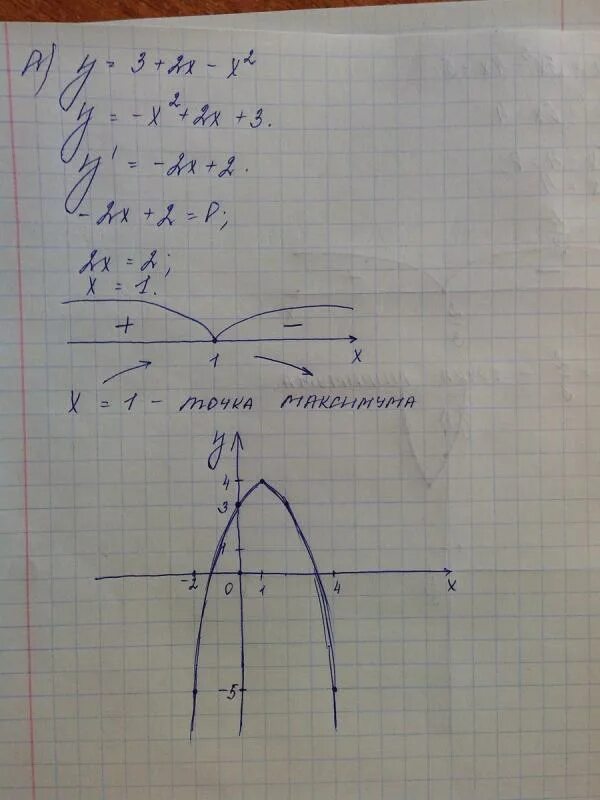 А) y = 3 + 2x - x²
y = -x² + 2x + 3.
y' = -2x + 2.
-2x + 2 = P;
2x = 2;
x = 1.
+ -
1 x
x = 1 - точка максимума
y
4
3
1
-2 0 1 4 x
-5